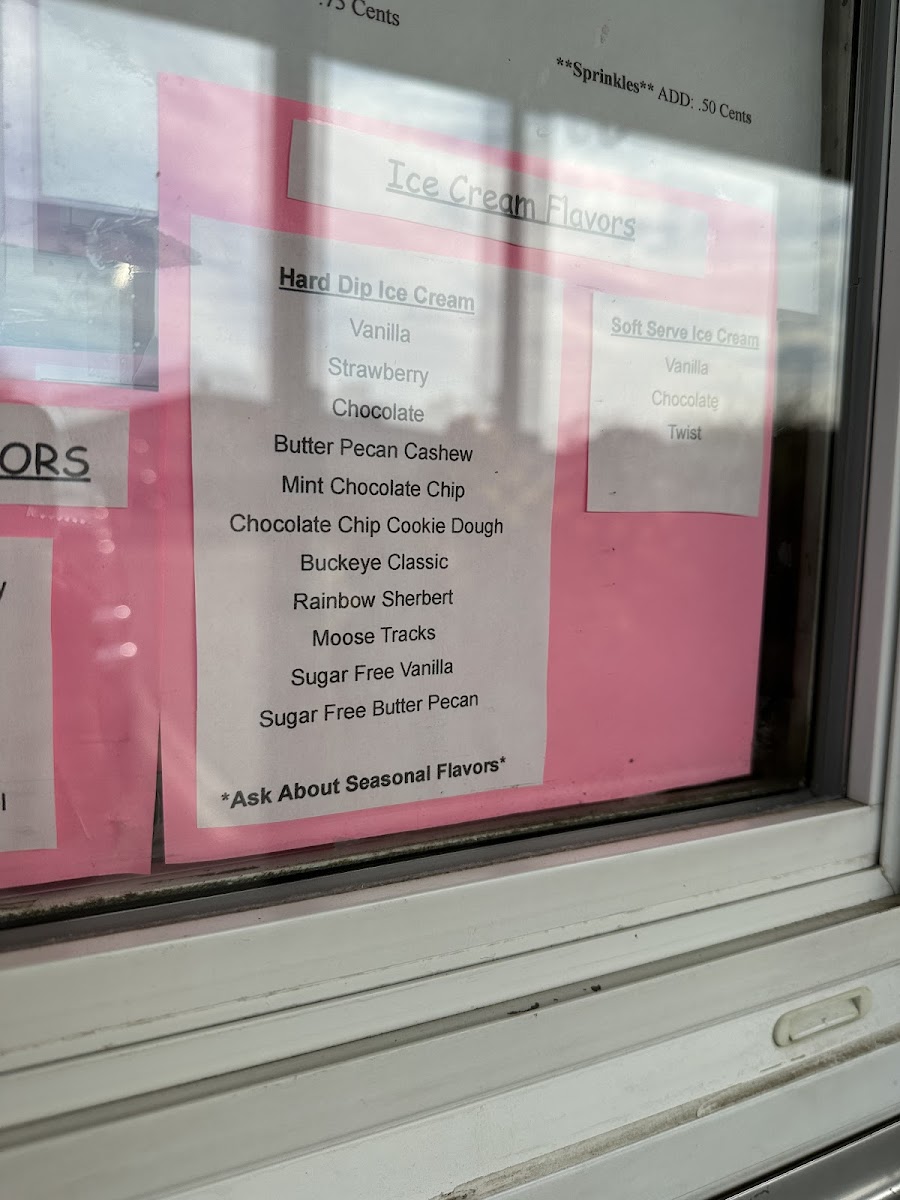 .75 Cents
**Sprinkles** ADD: .50 Cents
Ice Cream Flavors
Hard Dip Ice Cream
Vanilla
Strawberry
Chocolate
Butter Pecan Cashew
Mint Chocolate Chip
Chocolate Chip Cookie Dough
Buckeye Classic
Rainbow Sherbert
Moose Tracks
Sugar Free Vanilla
Sugar Free Butter Pecan
*Ask About Seasonal Flavors*
Soft Serve Ice Cream
Vanilla
Chocolate
Twist
ORS